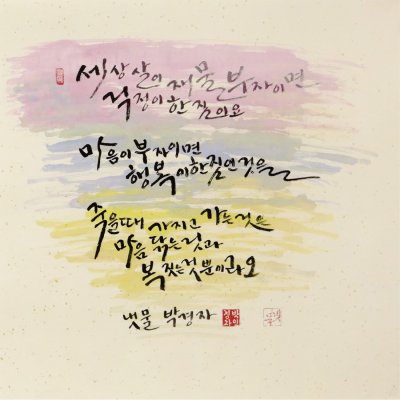 세상살이 재물 부자이면
걱정이 한 짐이요
마음이 부자이면
행복이 한 짐인 것을
죽을때 가지고 가는것은
마음 닦는것과
복 짓는것뿐이라오
냇물 박경자